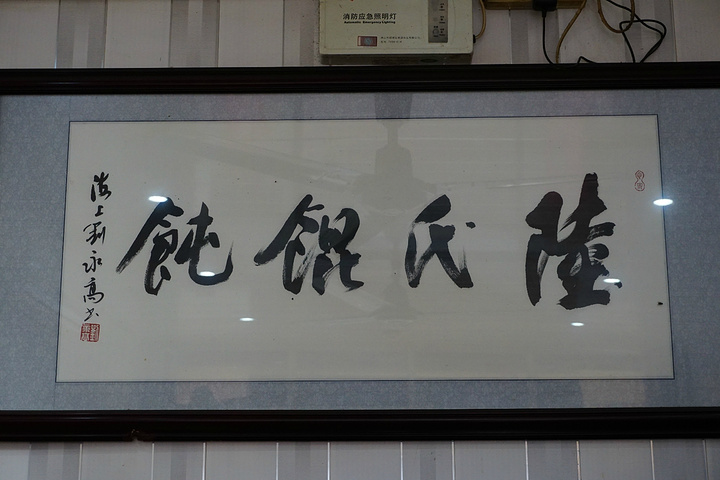 消防应急照明灯
Automatic Emergency Lighting
陸氏餛飩
海上劉永高书